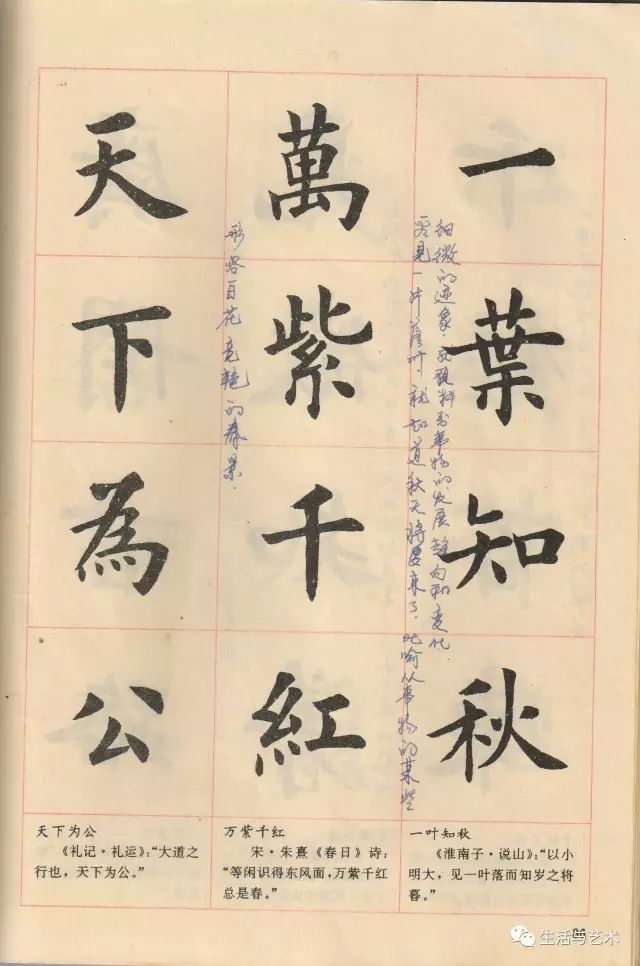 一葉知秋
见一片落叶,就知道秋天将要来了.比喻从事物的某些
细微的迹象,预料到事物的发展趋向和变化.
萬紫千紅
形容百花竞艳的春景.
天下為公
一叶知秋
《淮南子·说山》:“以小
明大,见一叶落而知岁之将
暮。”
万紫千红
宋·朱熹《春日》诗:
“等闲识得东风面,万紫千红
总是春。”
天下为公
《礼记·礼运》:“大道之
行也,天下为公。”
生活与艺术